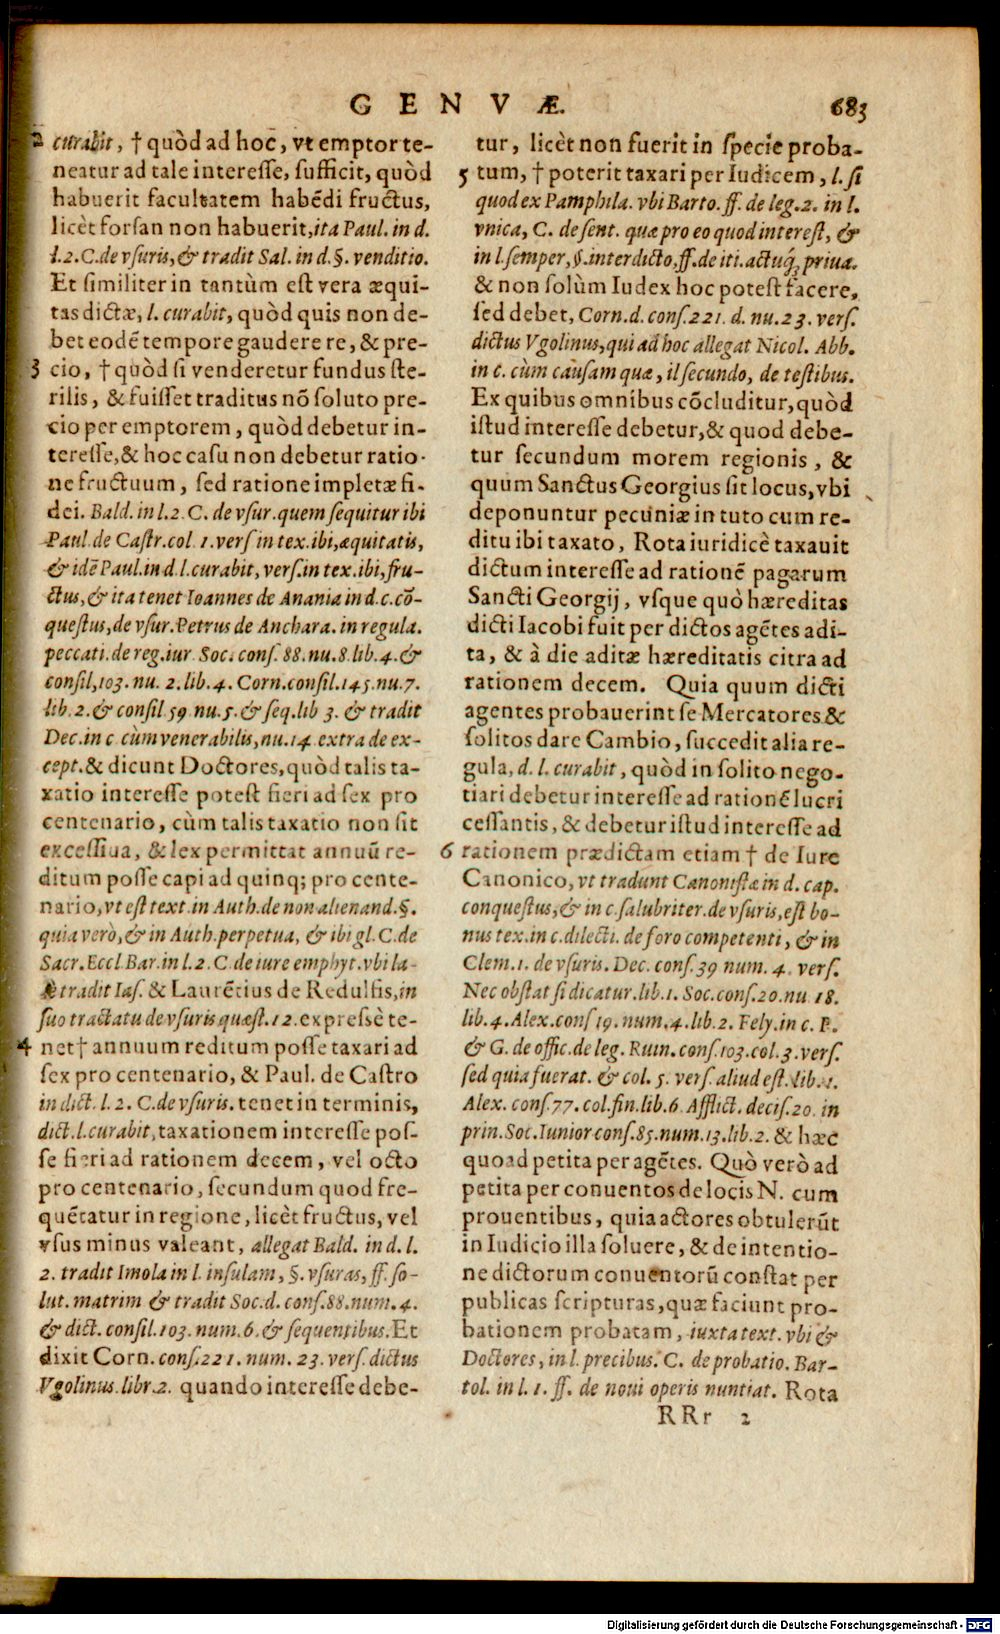 GENVÆ. 683
2 curabit, † quòd ad hoc, vt emptor te-
neatur ad tale interesse, sufficit, quòd
habuerit facultatem habẽdi fructus,
licèt forsan non habuerit, ita Paul. in d.
l. 2. C. de vsuris, & tradit Sal. in d. §. venditio.
Et similiter in tantùm est vera æqui-
tas dictæ, l. curabit, quòd quis non de-
bet eodẽ tempore gaudere re, & pre-
3 cio, † quòd si venderetur fundus ste-
rilis, & fuisset traditus nõ soluto pre-
cio per emptorem, quòd debetur in-
teresse, & hoc casu non debetur ratio-
ne fructuum, sed ratione impletæ fi-
dei. Bald. in l. 2. C. de vsur. quem sequitur ibi
Paul. de Castr. col. 1. vers in tex. ibi, æquitatis,
& idẽ Paul. in d. l. curabit, vers. in tex. ibi, fru-
ctus, & ita tenet Ioannes de Anania in d. c. cõ-
questus, de vsur. Petrus de Anchara. in regula.
peccati. de reg. iur. Soc. cons. 88. nu. 8. lib. 4. &
consil, 103. nu. 2. lib. 4. Corn. consil. 145. nu. 7.
lib. 2. & consil 59. nu. 5. & seq. lib 3. & tradit
Dec. in c. cùm venerabilis, nu. 14. extra de ex-
cept. & dicunt Doctores, quòd talis ta-
xatio interesse potest fieri ad sex pro
centenario, cùm talis taxatio non sit
excessiua, & lex permittat annuũ re-
ditum posse capi ad quinq; pro cente-
nario, vt est text. in Auth. de non alienand. §.
quia verò, & in Auth. perpetua, & ibi gl. C. de
Sacr. Eccl Bar. in l. 2. C. de iure emphyt. vbi la-
tè tradit Ias. & Laurẽtius de Redulfis, in
suo tractatu de vsuris quæst. 12. expressè te-
4 net † annuum reditum posse taxari ad
sex pro centenario, & Paul. de Castro
in dict. l. 2. C. de vsuris. tenet in terminis,
dict. l. curabit, taxationem interesse pos-
se fieri ad rationem decem, vel octo
pro centenario, secundum quod fre-
quẽtatur in regione, licèt fructus, vel
vsus minus valeant, allegat Bald. in d. l.
2. tradit Imola in l. insulam, §. vsuras, ff. so-
lut. matrim & tradit Soc. d. cons. 88. num. 4.
& dict. consil. 103. num. 6. & sequentibus. Et
dixit Corn. cons. 221. num. 23. vers. dictus
Vgolinus. libr. 2. quando interesse debe-
tur, licèt non fuerit in specie proba-
5 tum, † poterit taxari per Iudicem, l. si
quod ex Pamphila. vbi Barto. ff. de leg. 2. in l.
vnica, C. de sent. quæ pro eo quod interest, &
in l. semper, §. interdicto, ff. de iti. actuq; priua.
& non solùm Iudex hoc potest facere,
sed debet, Corn. d. cons. 221. d. nu. 23. vers.
dictus Vgolinus, qui ad hoc allegat Nicol. Abb.
in c. cùm causam quæ, il secundo, de testibus.
Ex quibus omnibus cõcluditur, quòd
istud interesse debetur, & quod debe-
tur secundum morem regionis, &
quum Sanctus Georgius sit locus, vbi
deponuntur pecuniæ in tuto cum re-
ditu ibi taxato, Rota iuridicè taxauit
dictum interesse ad rationẽ pagarum
Sancti Georgij, vsque quò hæreditas
dicti Iacobi fuit per dictos agẽtes adi-
ta, & à die aditæ hæreditatis citra ad
rationem decem. Quia quum dicti
agentes probauerint se Mercatores &
solitos dare Cambio, succedit alia re-
gula, d. l. curabit, quòd in solito nego-
tiari debetur interesse ad rationẽ lucri
cessantis, & debetur istud interesse ad
6 rationem prædictam etiam † de Iure
Canonico, vt tradunt Canonistæ in d. cap.
conquestus, & in c. salubriter. de vsuris, est bo-
nus tex. in c. dilecti. de foro competenti, & in
Clem. 1. de vsuris. Dec. cons. 39 num. 4. vers.
Nec obstat si dicatur. lib. 1. Soc. cons. 20. nu 18.
lib. 4. Alex. cons 19. num. 4. lib. 2. Fely. in c. P.
& G. de offic. de leg. Ruin. cons. 103. col. 3. vers.
sed quia fuerat. & col. 5. vers. aliud est. lib. 1.
Alex. cons. 77. col. fin. lib. 6. Afflict. decis. 20. in
prin. Soc. Iunior cons. 85. num. 13. lib. 2. & hæc
quoad petita per agẽtes. Quò verò ad
petita per conuentos de locis N. cum
prouentibus, quia actores obtulerũt
in Iudicio illa soluere, & de intentio-
ne dictorum conuentorũ constat per
publicas scripturas, quæ faciunt pro-
bationem probatam, iuxta text. vbi &
Doctores, in l. precibus. C. de probatio. Bar-
tol. in l. 1. ff. de noui operis nuntiat. Rota
RRr 2
Digitalisierung gefördert durch die Deutsche Forschungsgemeinschaft - DFG